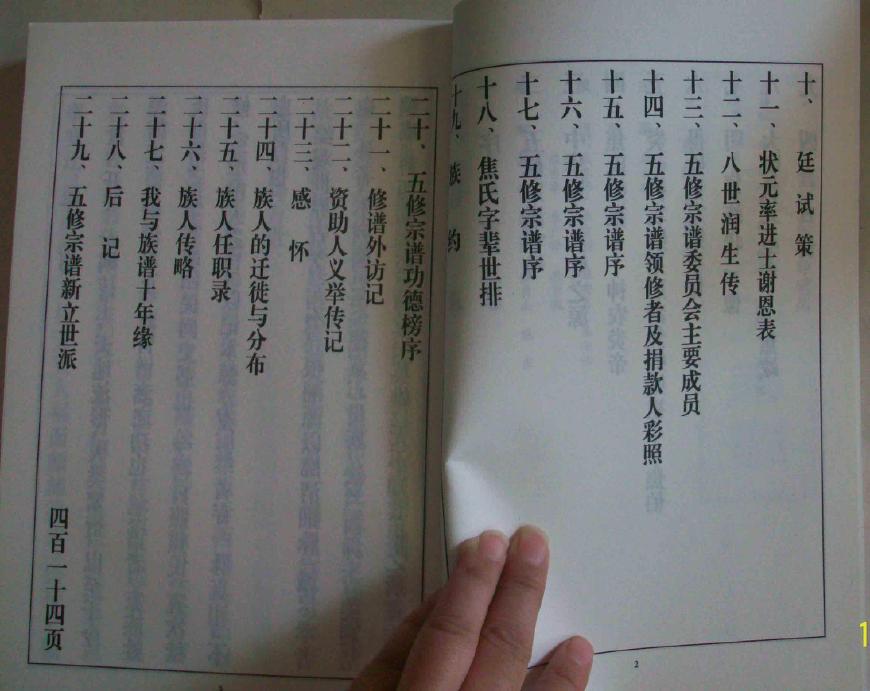 十、廷试策
十一、状元率进士谢恩表
十二、八世润生传
十三、五修宗谱委员会主要成员
十四、五修宗谱领修者及捐款人彩照
十五、五修宗谱序
十六、五修宗谱序
十七、五修宗谱序
十八、焦氏字辈世排
十九、族约
2
二十、五修宗谱功德榜序
二十一、修谱外访记
二十二、资助人义举传记
二十三、感怀
二十四、族人的迁徙与分布
二十五、族人任职录
二十六、族人传略
二十七、我与族谱十年缘
二十八、后记
二十九、五修宗谱新立世派
四百一十四页
1